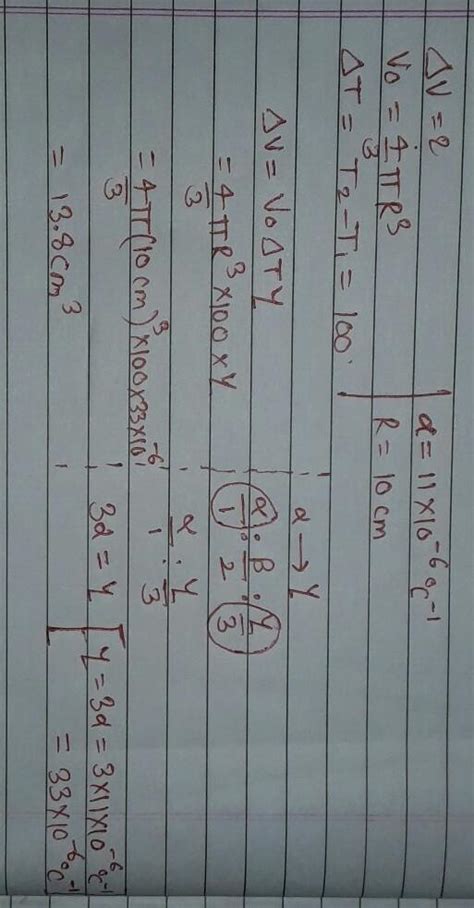 ΔV = ?
V₀ = 4/3 πR³
ΔT = T₂-T₁ = 100°
α = 11×10⁻⁶ °C⁻¹
R = 10 cm
ΔV = V₀ΔTγ
= 4/3 πR³ ×100×γ
= 4/3 π(10 cm)³×100×33×10⁻⁶
= 13.8 cm³
α → γ
α/1 : β/2 : γ/3
α/1 : γ/3
3α = γ
γ = 3α = 3×11×10⁻⁶ °C⁻¹
= 33×10⁻⁶ °C⁻¹